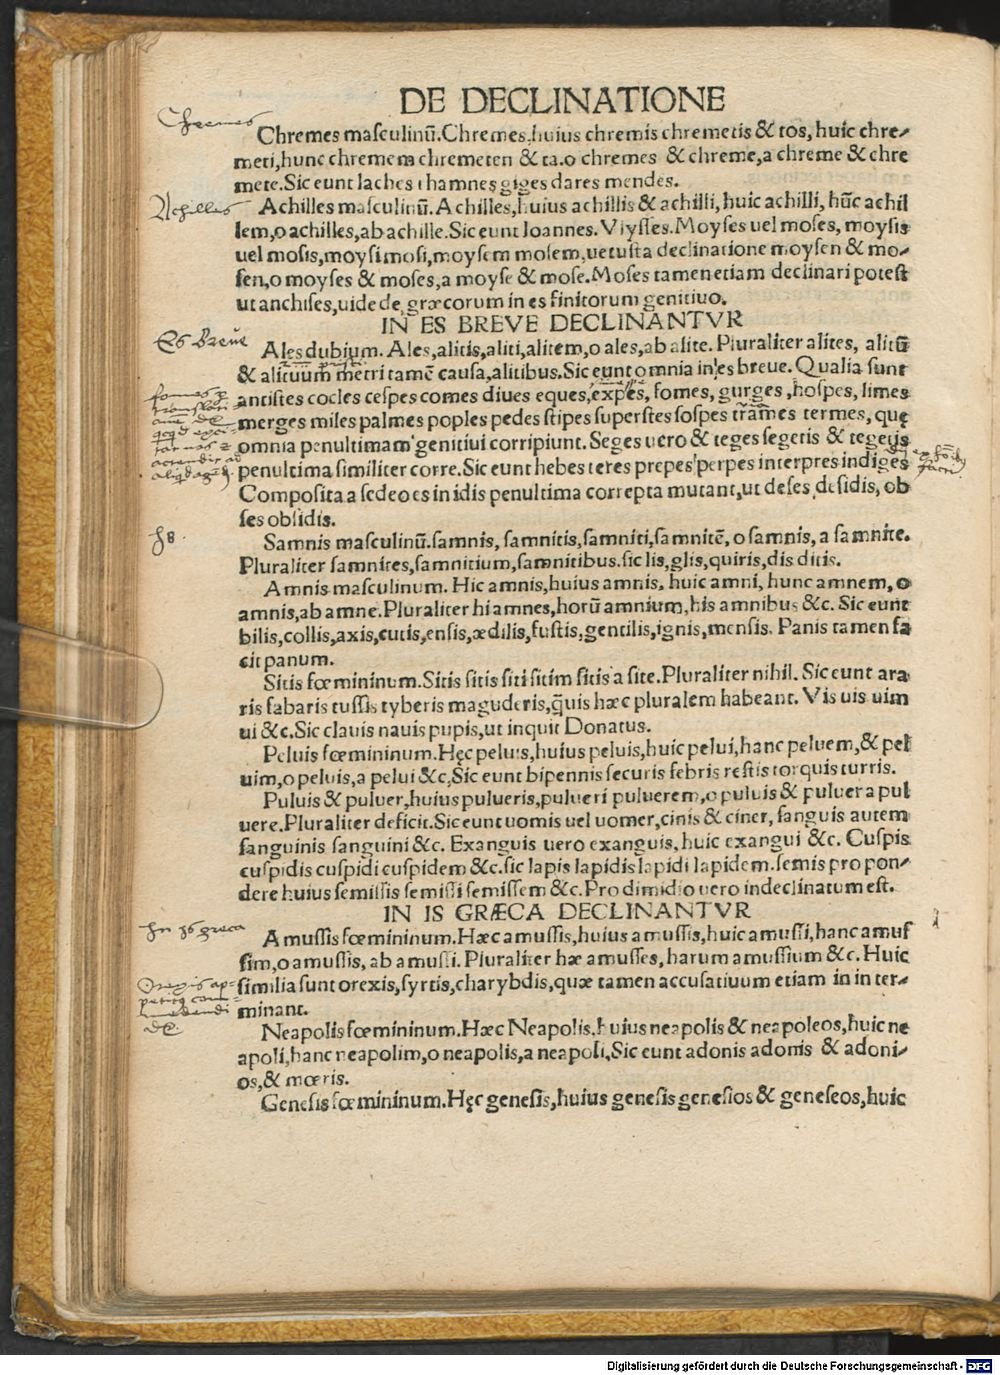 DE DECLINATIONE
Chremes
Chremes maſculinũ. Chremes, huius chremis chremetis & tos, huic chre⸗
meti, hunc chremem chremeten & ta. o chremes & chreme, a chreme & chre
mete. Sic eunt laches thamnes giges dares mendes.
Achilles
Achilles maſculinũ. Achilles, huius achillis & achilli, huic achilli, hũc achil
lem, o achilles, ab achille. Sic eunt Ioannes. Vlyſſes. Moyſes uel moſes, moyſis
uel moſis, moyſi moſi, moyſem moſem, uetuſta declinatione moyſen & mo⸗
ſen, o moyſes & moſes, a moyſe & moſe. Moſes tamen etiam declinari poteſt
ut anchiſes, uide de græcorum in es finitorum genitiuo.
IN ES BREVE DECLINANTVR
Es breue
Ales dubium. Ales, alitis, aliti, alitem, o ales, ab alite. Pluraliter alites, alitũ
& alituum metri tamẽ cauſa, alitibus. Sic eunt omnia in es breue. Qualia ſunt
antiſtes cocles ceſpes comes diues eques, expes, fomes, gurges, hoſpes, limes
merges miles palmes poples pedes ſtipes ſuperſtes ſoſpes trames termes, quę
omnia penultimam genitiui corripiunt. Seges uero & teges ſegetis & tegetis
penultima ſimiliter corre. Sic eunt hebes teres prepes perpes interpres indiges
Compoſita a ſedeo es in idis penultima correpta mutant, ut deſes, deſidis, ob
ſes obſidis.
Is
Samnis maſculinũ. ſamnis, ſamnitis, ſamniti, ſamnitẽ, o ſamnis, a ſamnite.
Pluraliter ſamnites, ſamnitium, ſamnitibus. ſic lis, glis, quiris, dis ditis.
Amnis maſculinum. Hic amnis, huius amnis, huic amni, hunc amnem, o
amnis, ab amne. Pluraliter hi amnes, horũ amnium, his amnibus &c. Sic eunt
bilis, collis, axis, cutis, enſis, ædilis, fuſtis, gentilis, ignis, menſis. Panis tamen fa
cit panum.
Sitis fœmininum. Sitis ſitis ſiti ſitim ſitis a ſite. Pluraliter nihil. Sic eunt ara
ris fabaris tuſſis tyberis maguderis, q̃uis hæc pluralem habeant. Vis uis uim
ui &c. Sic clauis nauis pupis, ut inquit Donatus.
Peluis fœmininum. Hęc peluis, huius peluis, huic pelui, hanc peluem, & pel
uim, o peluis, a pelui &c, Sic eunt bipennis ſecuris febris reſtis torquis turris.
Puluis & puluer, huius pulueris, pulueri puluerem, o puluis & puluer a pul
uere. Pluraliter deficit. Sic eunt uomis uel uomer, cinis & ciner, ſanguis autem
ſanguinis ſanguini &c. Exanguis uero exanguis, huic exangui &c. Cuſpis
cuſpidis cuſpidi cuſpidem &c. ſic lapis lapidis lapidi lapidem. ſemis pro pon⸗
dere huius ſemiſſis ſemiſſi ſemiſſem &c. Pro dimidio uero indeclinatum eſt.
IN IS GRÆCA DECLINANTVR
In is greca
Amuſſis fœmininum. Hæc amuſſis, huius amuſſis, huic amuſſi, hanc amuſ
ſim, o amuſſis, ab amuſſi. Pluraliter hæ amuſſes, harum amuſſium &c. Huic
ſimilia ſunt orexis, ſyrtis, charybdis, quæ tamen accuſatiuum etiam in in ter⸗
minant.
Neapolis fœmininum. Hæc Neapolis. huius neapolis & neapoleos, huic ne
apoli, hanc neapolim, o neapolis, a neapoli. Sic eunt adonis adonis & adoni⸗
os, & mœris.
Geneſis fœmininum. Hęc geneſis, huius geneſis geneſios & geneſeos, huic
Digitalisierung gefördert durch die Deutsche Forschungsgemeinschaft - DFG